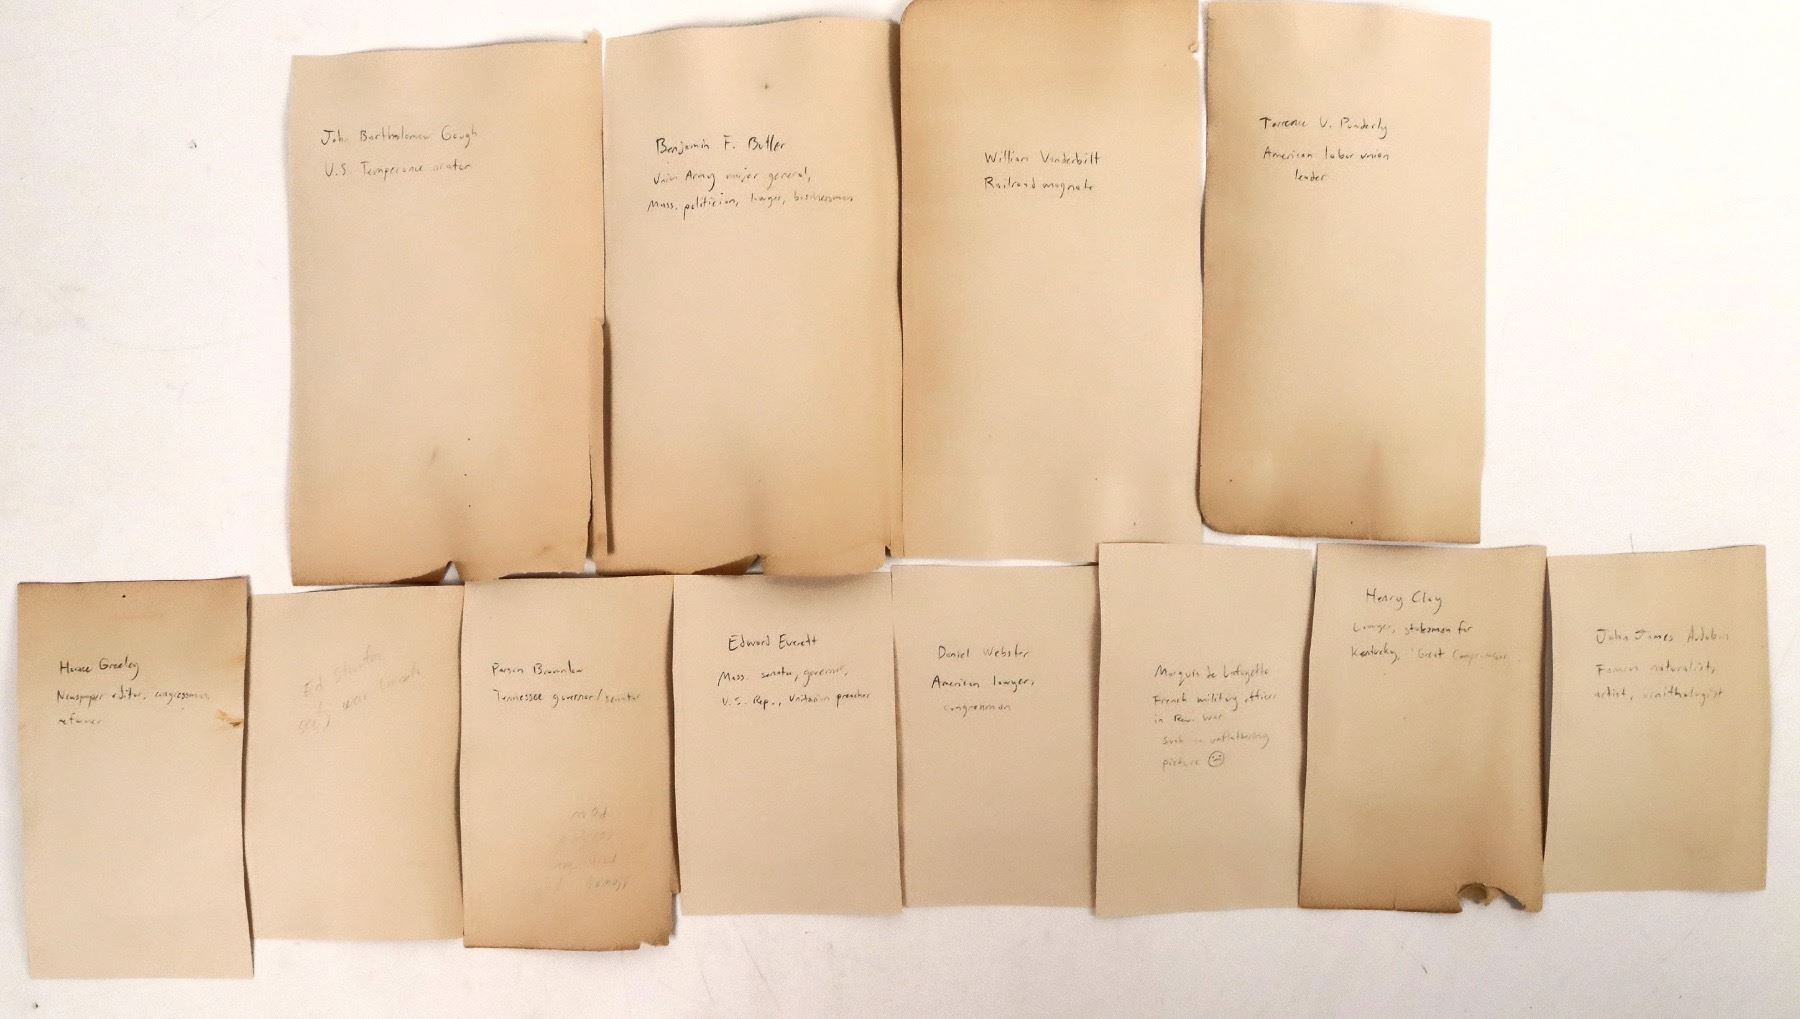 John Bartholomew Gough
U.S. Temperance orator
Benjamin F. Butler
Union Army major general,
Mass. politician, lawyer, businessman
William Vanderbilt
Railroad magnate
Terrence V. Powderly
American labor union
leader
Horace Greeley
Newspaper editor, congressman
reformer
Ed Stanton
Parson Brownlow
Tennessee governor/senator
Edward Everett
Mass. senator, governor,
U.S. Rep., Unitarian preacher
Daniel Webster
American lawyer,
congressman
Marquis de Lafayette
French military officer
in Rev. War
such an unflattering
picture ☹
Henry Clay
Lawyer, statesman for
Kentucky, "Great Compromiser"
John James Audubon
Famous naturalist,
artist, ornithologist